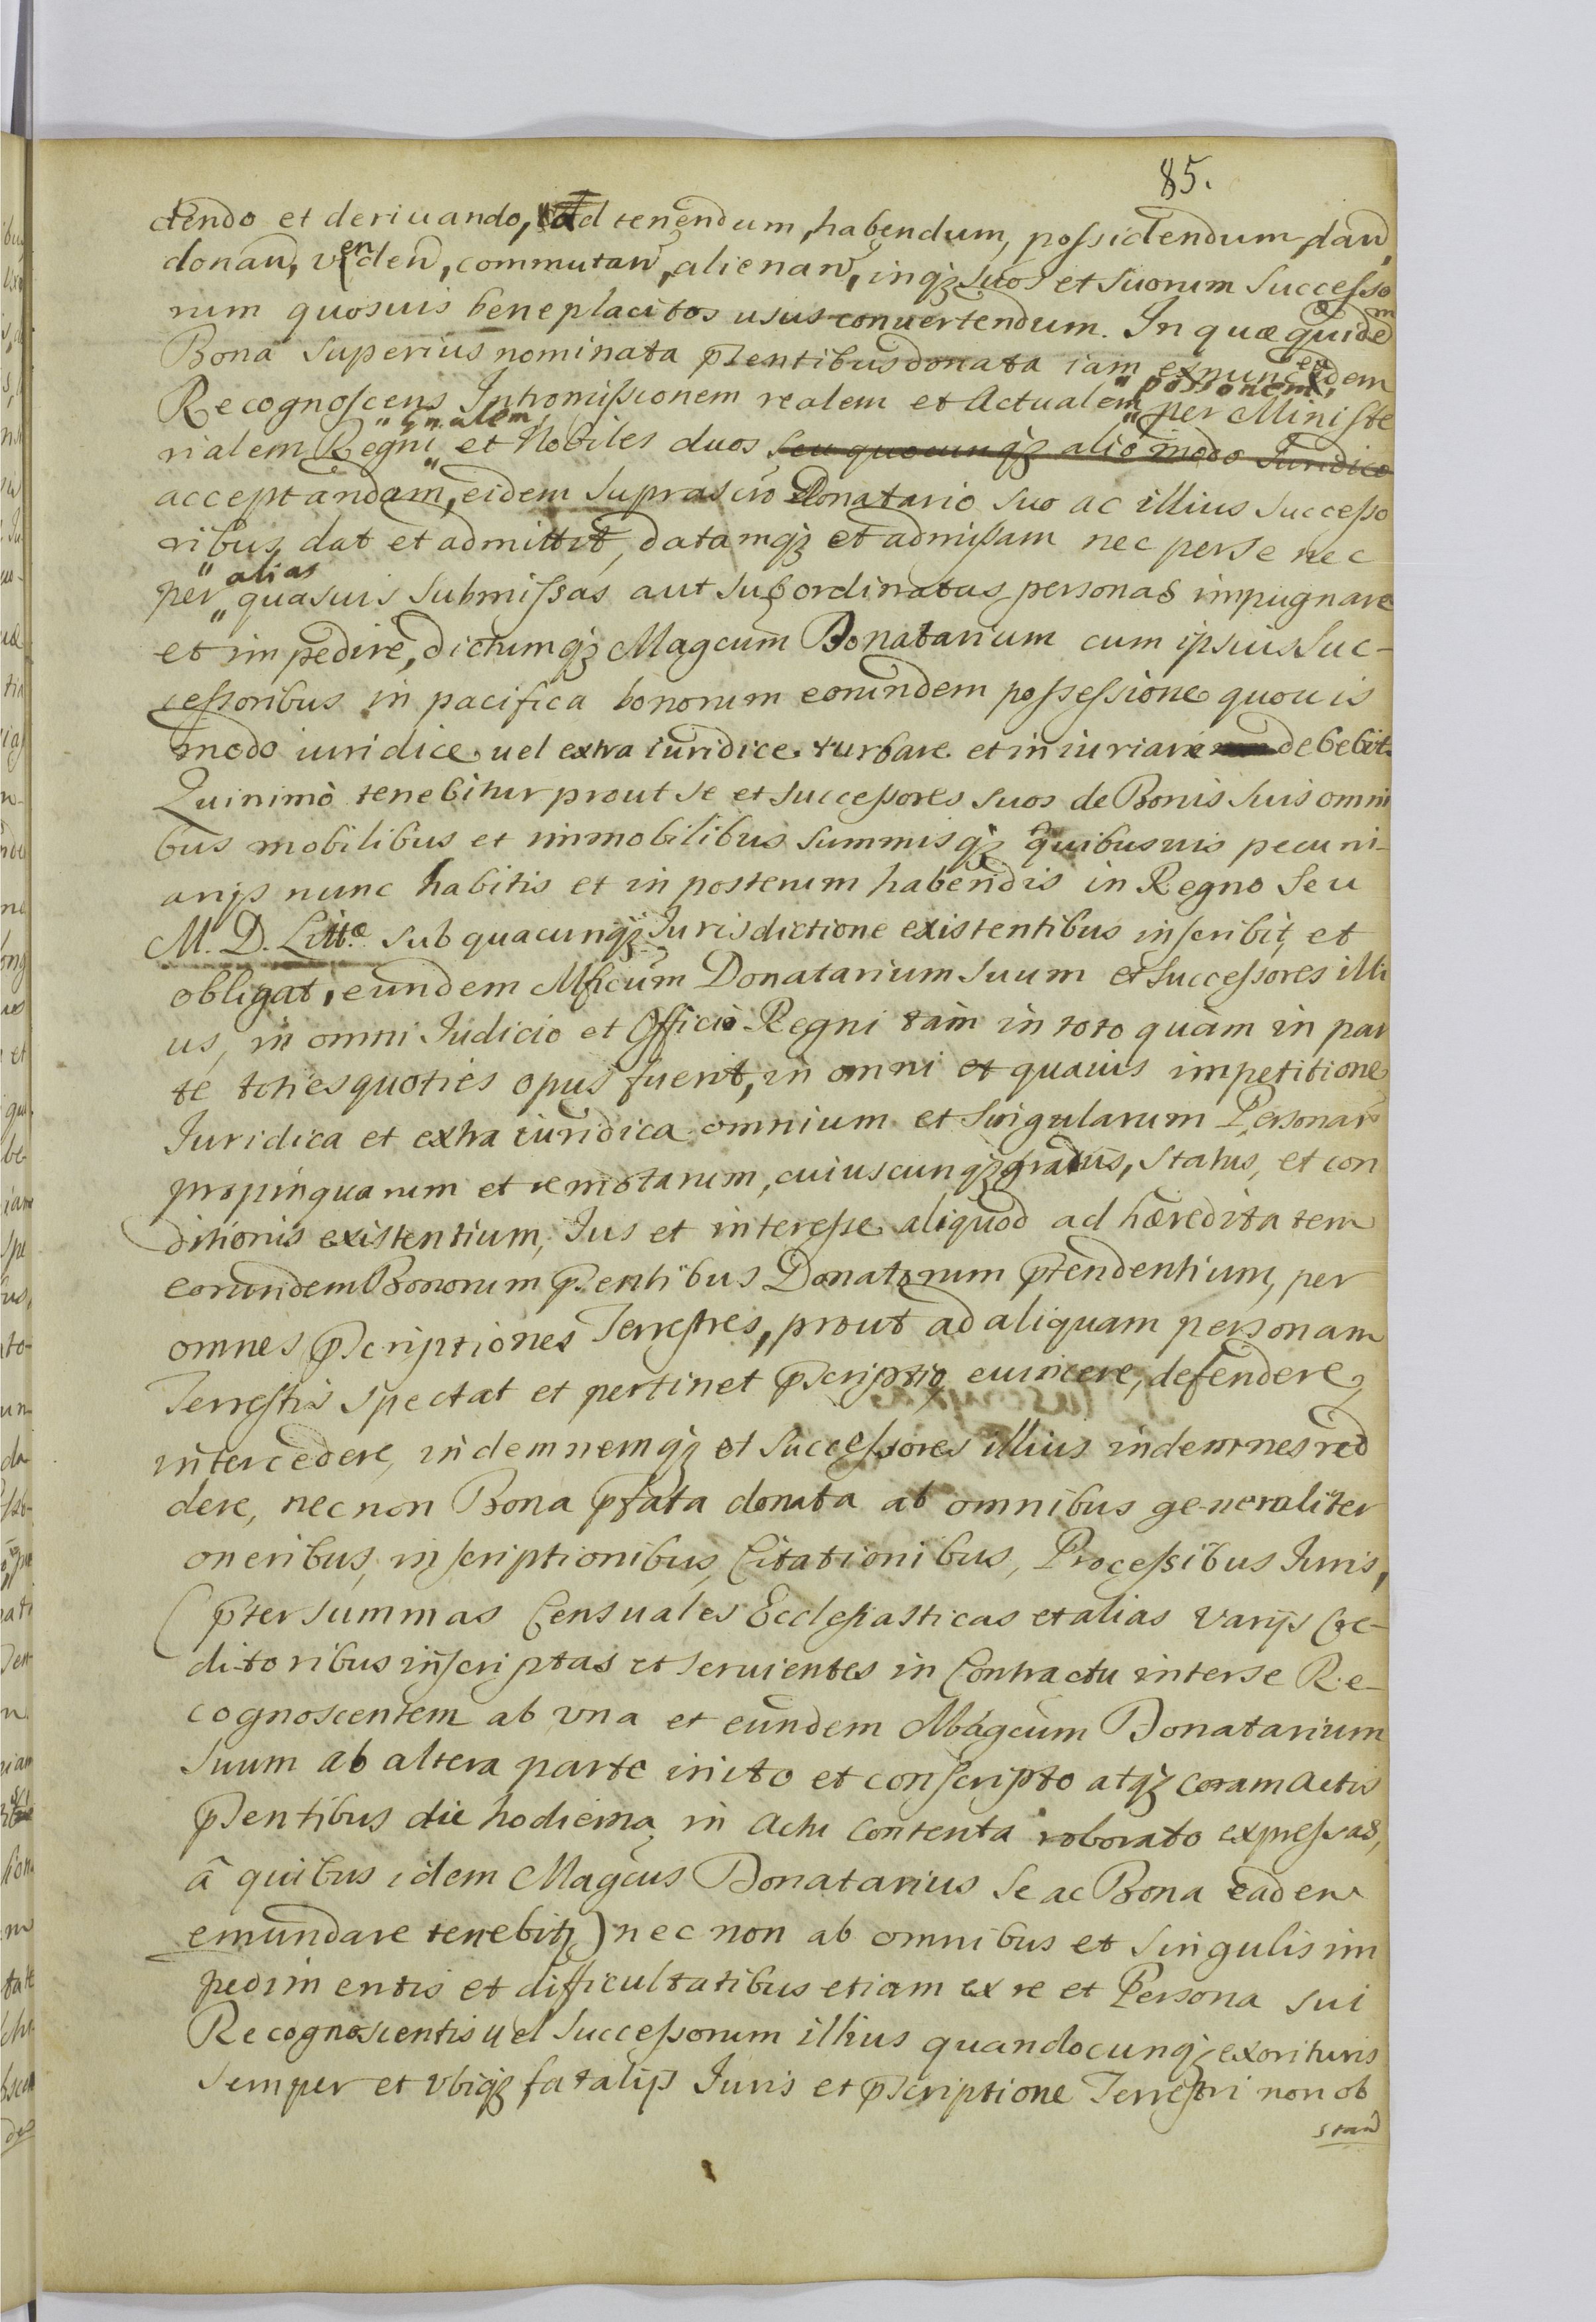 85.
ctendo et deriuando, ad tenendum, habendum, possidendum, dan̄,
donan̄, venden̄, commutan̄, alienan̄, inq́ʒ suos et suorum Successo
rum quosuis beneplacitos usus conuertendum. In quæ quidem
Bona superius nominata p̄sentibus donata iam exnunc eadem
Recognoscens Intromissionem realem et Actualem " possonem, per Ministe
rialem Regni " Gn̄alem, et Nobiles duos seu quocunq́ʒ alio modo Juridico
acceptandam, eidem suprascr̄o Donatario suo ac illius Successo
ribus, dat et admittit, datamq́ʒ et admissam nec perse nec
per " alias quasuis submissas aut subordinatas personas impugnare
et impedire, dictumq́ʒ Magcum Donatarium cum ipsius Suc-
cessoribus in pacifica bonorum eorundem possessione quouis
modo iuridice uel extra iuridice turbare et iniuriare debebit.
Quinimò tenebitur prout se et successores suos de Bonis suis omni
bus mobilibus et immobilibus summisq́ʒ quibusuis pecuni-
arijs nunc habitis et in posterum habendis in Regno seu
M. D. Litt.æ sub quacunq́ʒ Jurisdictione existentibus inscribit, et
obligat, eundem Mficum Donatarium suum et successores illi
us, in omni Judicio et Officio Regni tam in toto quàm in par
te toties quoties opus fuerit, in omni et quauis impetitione
Juridica et extra iuridica omnium et singularum Personar̄
propinquarum et remotarum, cuiuscunq́ʒ gradus, status, et con
ditionis existentium, Jus et interesse aliquod ad hæreditatem
eorundem Bonorum p̄sentibus Donatorum p̄tendentium, per
omnes p̄scriptiones Terrestres, prout ad aliquam personam
Terrestris spectat et pertinet p̄scriptio euincere, defendere,
intercedere, indemnemq́ʒ et successores illius indemnes red
dere, necnon Bona p̄fata donata ab omnibus generaliter
oneribus, inscriptionibus, Citationibus, Processibus Juris,
(p̄ter summas Censuales Ecclesiasticas et alias varijs Cre-
ditoribus inscriptas et seruientes in Contractu interse Re-
cognoscentem ab vna et eundem Magcum Donatarium
suum ab altera parte inito et conscripto atq́ʒ coram Actis
p̄sentibus die hodierna in Actu contenta roborato expressas,
à quibus idem Magcus Donatarius se ac Bona eadem
emundare tenebitʒ) nec non ab omnibus et singulis im
pedimentis et difficultatibus etiam ex re et Persona sui
Recognoscentis uel Successorum illius quandocunq́ʒ exorituris
semper et vbiq́ʒ fatalijs Juris et p̄scriptione Terrestri non ob
stan̄